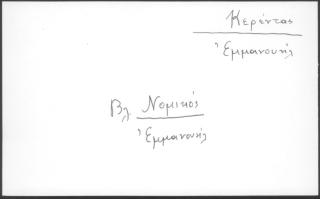 Κερέντας
Ἐμμανουήλ
Βλ Νομικός
Ἐμμανουήλ